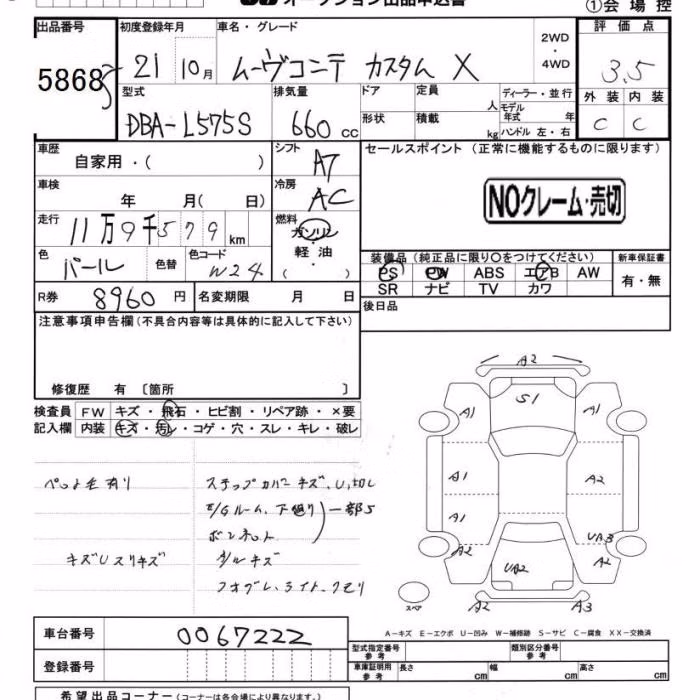 オークション出品申込書
①会場控
出品番号
5868
初度登録年月
車名・グレード
21 10月
ムーヴコンテ カスタム X
2WD
・
4WD
評価点
3.5
型式
排気量
ドア
定員
人
ディーラー・並行
モデル
年式 年
外装 内装
DBA-L575S
660 cc
形状
積載
kg
ハンドル 左・右
C C
車歴
自家用・( )
シフト
AT
セールスポイント (正常に機能するものに限ります)
車検
年 月( 日)
冷房
AC
NOクレーム・売切
走行
11万9千579 km
燃料
ガソリン
軽油
( )
色
パール
色替
色コード
W24
装備品 (純正品に限り○をつけてください)
新車保証書
PS PW ABS エアB AW
有・無
SR ナビ TV カワ
R券 8960 円
名変期限 月 日
後日品
注意事項申告欄 (不具合内容等は具体的に記入して下さい)
修復歴 有 〔箇所 〕
検査員
記入欄
FW キズ・飛石・ヒビ割・リペア跡・×要
内装 キズ・汚レ・コゲ・穴・スレ・キレ・破レ
ペット毛有り
ステップカバーキズ、U、切レ
E/Gルーム、下廻り
ボンネット
一部S
キズUスリキズ
タルキズ
フオグレ、ライト、クモリ
A2
S1
A1
A1
A1
A2
A1
UB3
A2
A2
UB2
A2
A3
スペア
車台番号
0067222
A-キズ E-エクボ U-凹み W-補修跡 S-サビ C-腐食 XX-交換済
型式指定番号
参考
類別区分番号
参考
登録番号
車庫証明用
参考
長さ cm
幅 cm
高さ cm
希望出品コーナー (コーナーは各会場により異なります。)